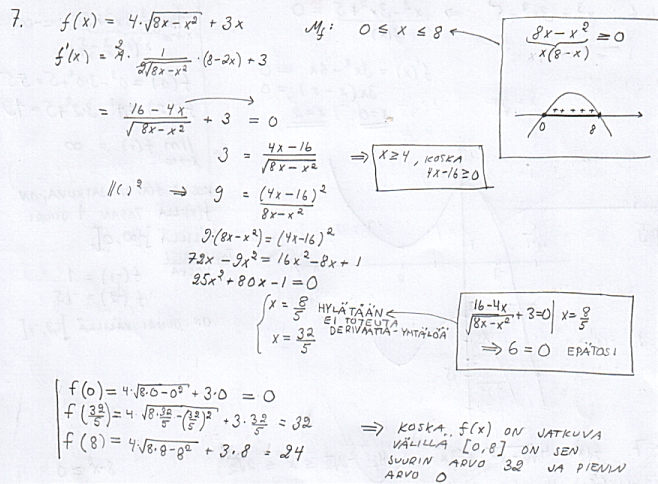 7. f(x) = 4·√(8x-x²) + 3x
M_f: 0 ≤ x ≤ 8
8x-x² ≥ 0
x(8-x)
+ + + + +
0 8
f'(x) = 4·1/(2√(8x-x²))·(8-2x) + 3
2
= (16-4x)/√(8x-x²) + 3 = 0
3 = (4x-16)/√(8x-x²)
⇒ x ≥ 4, KOSKA
4x-16 ≥ 0
||( )² ⇒ 9 = (4x-16)²/(8x-x²)
9·(8x-x²) = (4x-16)²
72x - 9x² = 16x² - 8x + 1
25x² + 80x - 1 = 0
{ x = 8/5 HYLÄTÄÄN
EI TOTEUTA
DERIVAATTA-YHTÄLÖÄ
x = 32/5
(16-4x)/√(8x-x²) + 3 = 0 | x = 8/5
⇒ 6 = 0 EPÄTOSI
f(0) = 4·√(8·0-0²) + 3·0 = 0
f(32/5) = 4·√(8·32/5-(32/5)²) + 3·32/5 = 32
f(8) = 4√(8·8-8²) + 3·8 = 24
⇒ KOSKA f(x) ON JATKUVA
VÄLILLÄ [0,8] ON SEN
SUURIN ARVO 32 JA PIENIN
ARVO 0